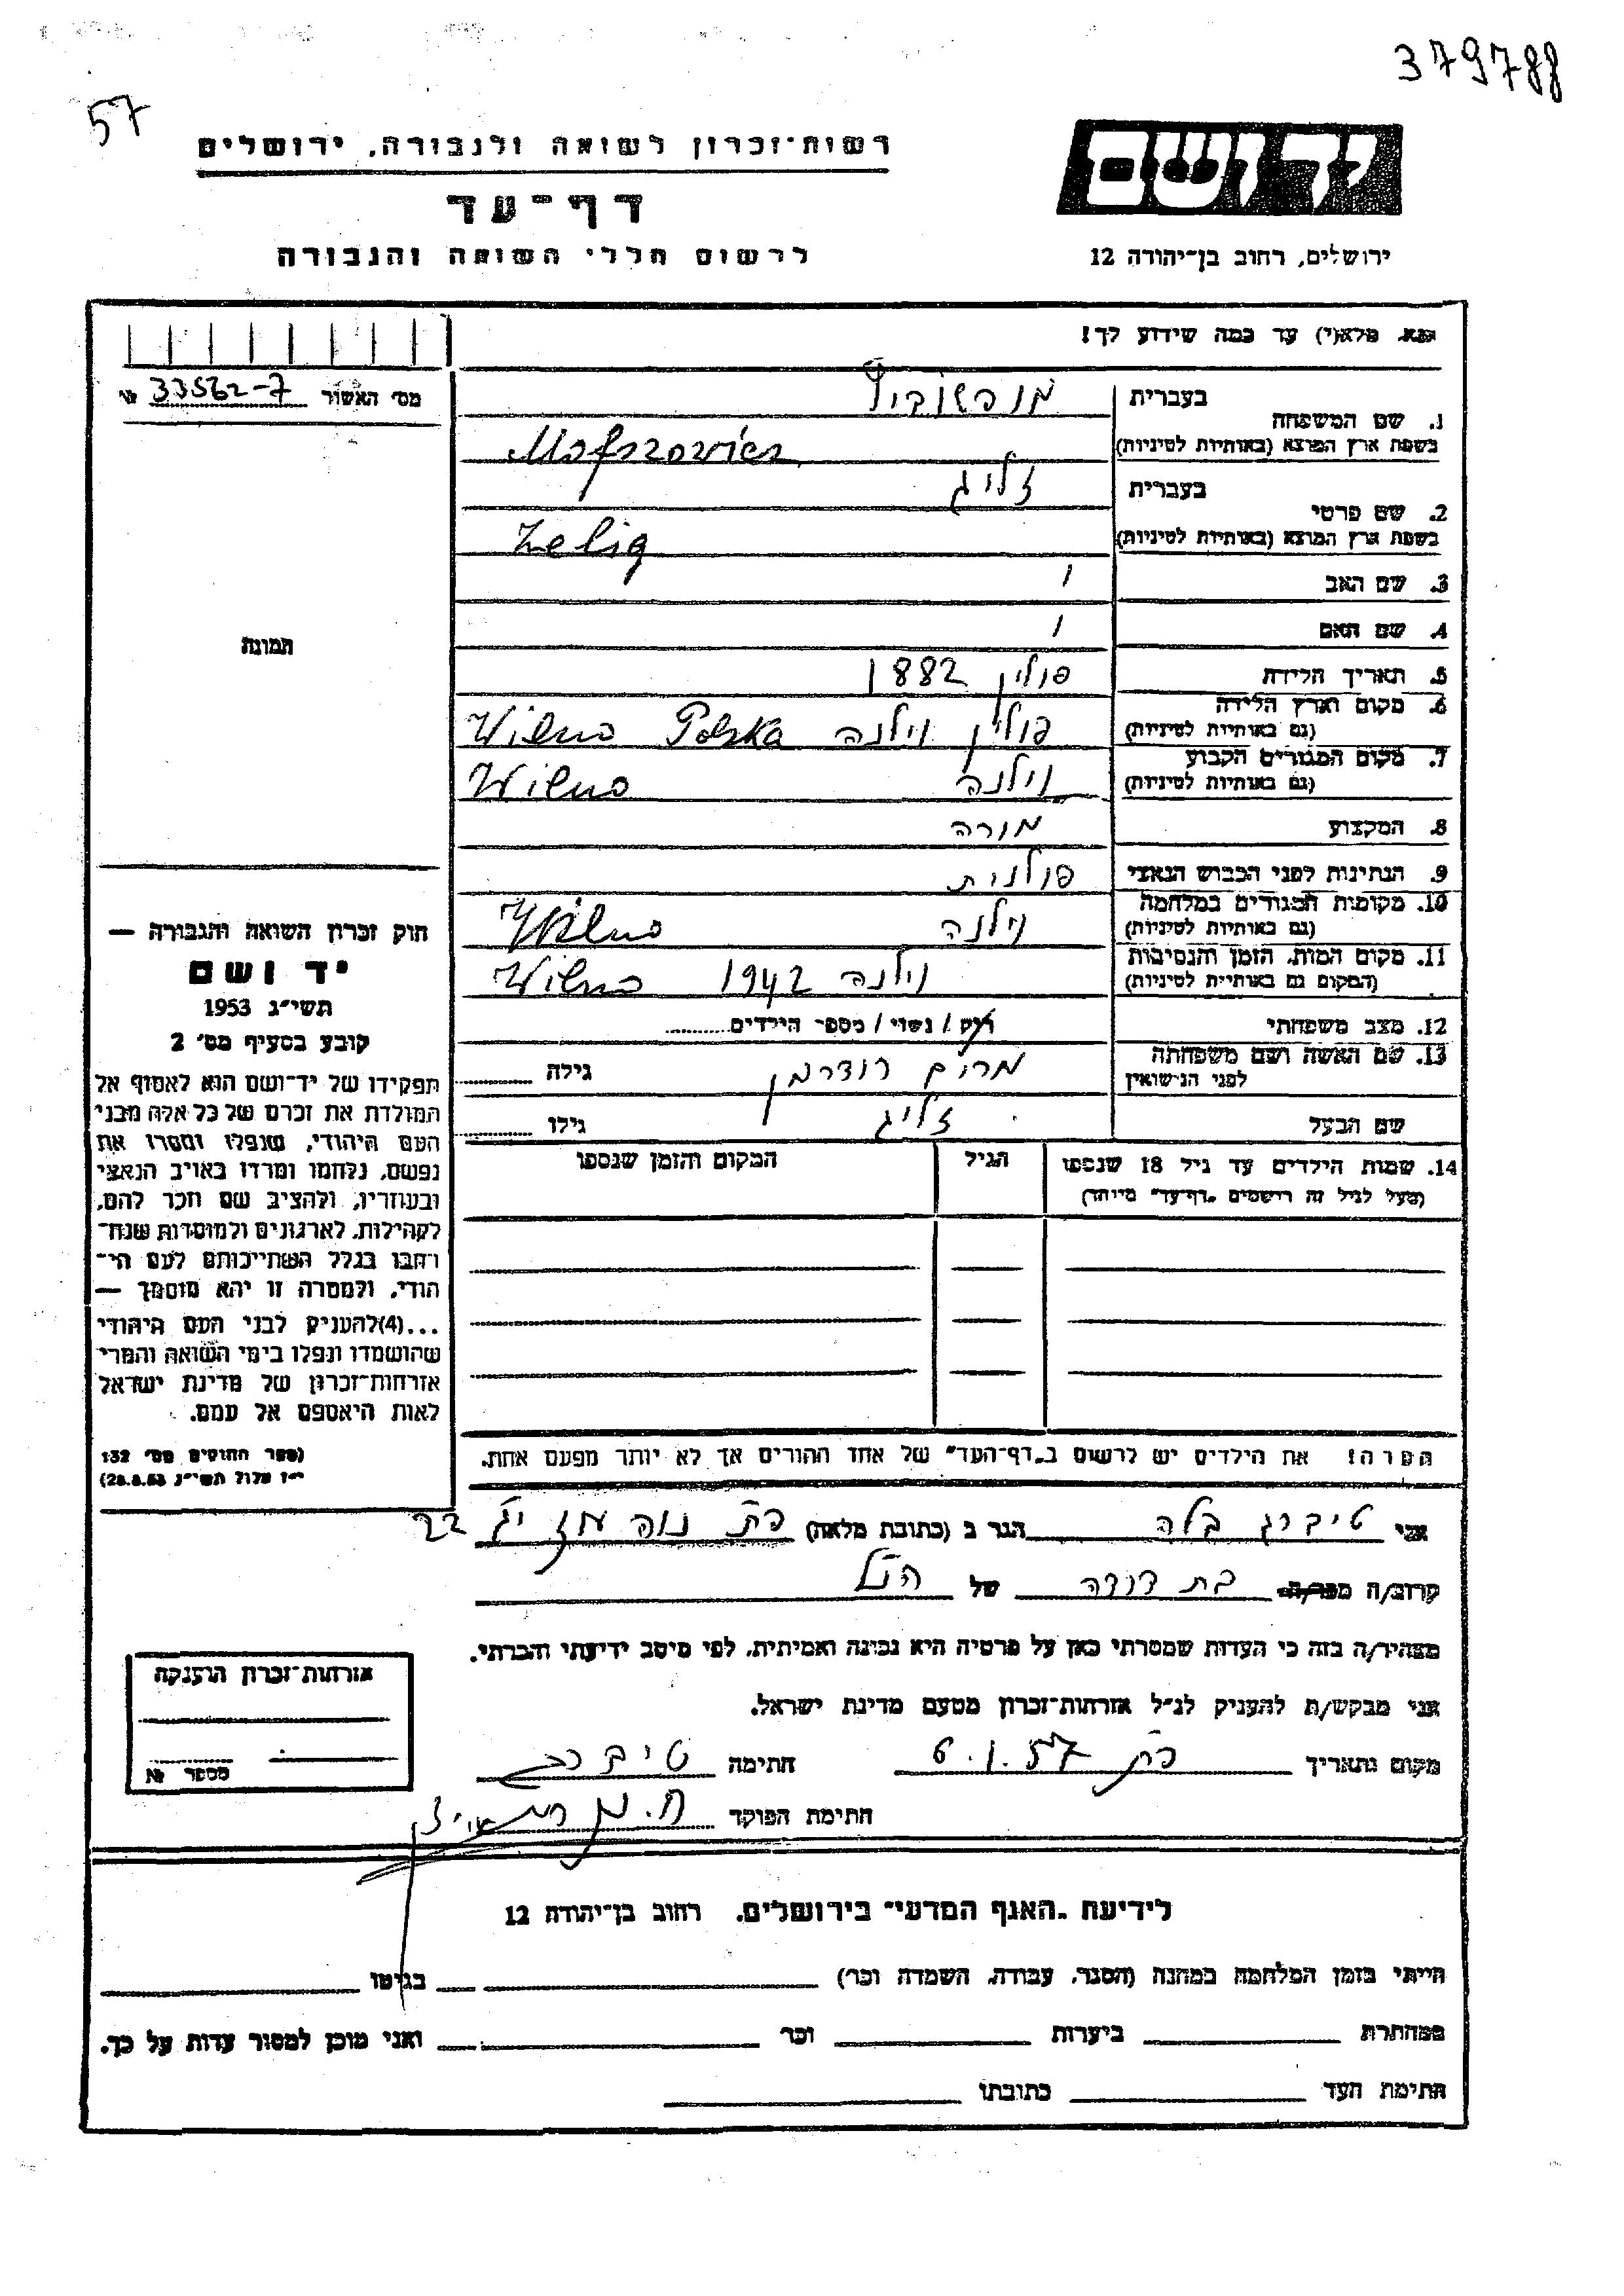 379788
57
רשות־זכרון לשואה ולגבורה, ירושלים
דף־עד
לרשום חללי השואה והגבורה
יד ושם
ירושלים, רחוב בן־יהודה 12
נא מלא(י) עד כמה שידוע לך!
מס׳ האשור 33562-7 №
1. שם המשפחה
בעברית מופשוביץ
בשפת ארץ המוצא (באותיות לטיניות) Mofszowicz
2. שם פרטי
בעברית זליג
בשפת ארץ המוצא (באותיות לטיניות) Zelig
3. שם האב
4. שם האם
5. תאריך הלידה פולין 1882
6. מקום וארץ הלידה (גם באותיות לטיניות) פולין וילנה Wilno Polska
7. מקום המגורים הקבוע (גם באותיות לטיניות) וילנה Wilno
8. המקצוע מורה
9. הנתינות לפני הכבוש הנאצי פולנית
10. מקומות המגורים במלחמה (גם באותיות לטיניות) וילנה Wilno
11. מקום המות, הזמן והנסיבות (המקום גם באותיות לטיניות) וילנה 1942 Wilno
12. מצב משפחתי רוק / נשוי / מספר הילדים
13. שם האשה ושם משפחתה לפני הנישואין מרים רודרמן גילה
שם הבעל זליג גילו
14. שמות הילדים עד גיל 18 שנספו הגיל המקום והזמן שנספו
(מעל לגיל זה רושמים „דף־עד" מיוחד)
הערה! את הילדים יש לרשום ב„דף־העד" של אחד ההורים אך לא יותר מפעם אחת.
תמונה
חוק זכרון השואה והגבורה —
יד ושם
תשי״ג 1953
קובע בסעיף מס׳ 2
תפקידו של יד־ושם הוא לאסוף אל
המולדת את זכרם של כל אלה מבני
העם היהודי, שנפלו ומסרו את
נפשם, נלחמו ומרדו באויב הנאצי
ובעוזריו, ולהציב שם וזכר להם,
לקהילות, לארגונים ולמוסדות שנח־
רבו בגלל השתייכותם לעם הי־
הודי, ולמטרה זו יהא מוסמך —
...(4)להעניק לבני העם היהודי
שהושמדו ונפלו בימי השואה והמרי
אזרחות־זכרון של מדינת ישראל
לאות היאספם אל עמם.
(ספר החוקים מס׳ 132
י״ז אלול תשי״ג 28.8.53)
אני טיברג בלה הגר ב (כתובת מלאה) פת נוה עוז יג 22
קרוב/ה מכר/ה בת דודה של הנ״ל
מצהיר/ה בזה כי העדות שמסרתי כאן על פרטיה היא נכונה ואמיתית, לפי מיטב ידיעתי והכרתי.
אני מבקש/ת להעניק לנ״ל אזרחות־זכרון מטעם מדינת ישראל.
מקום ותאריך פת 6.1.57 חתימה טיברג
חתימת הפוקד
אזרחות־זכרון הוענקה
מספר №
לידיעת „האגף המדעי" בירושלים, רחוב בן־יהודה 12
הייתי בזמן המלחמה במחנה (הסגר, עבודה, השמדה וכו׳) בגיטו
במחתרת ביערות וכו׳ ואני מוכן למסור עדות על כך.
חתימת העד כתובתו